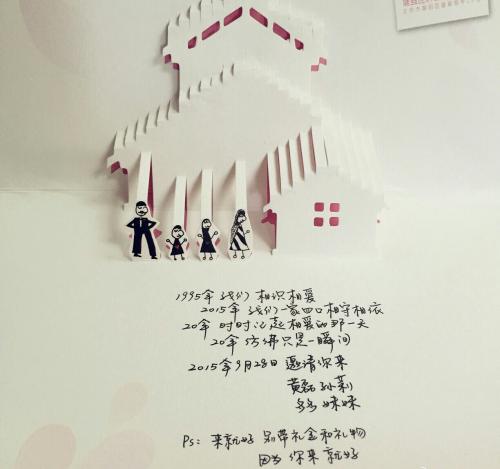 1995年 我们 相识相爱
2015年 我们一家四口相守相依
20年 时时忆起相爱的那一天
20年 仿佛只是一瞬间
2015年9月28日 邀请你来
黄磊 孙莉
多多 妹妹
Ps: 来就好 别带礼金和礼物
因为 你来 就好